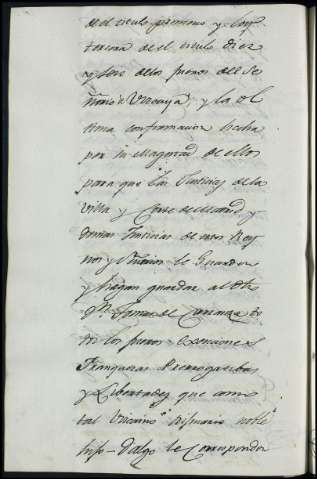 de el titulo primero y la
tercera de el titulo diez
y seis de los fueros de el Se
ñorio de Vizcaya y la ul
tima confirmacion hecha
por su Magestad de ellos
para que las Justicias de la
Villa y Corte de Madrid y
demas Justicias de esos Rey
nos y Señorios le Guarden
y hagan guardar al dho
Dn de Carranza to
dos los fueros exenciones
Franquezas Prerrogatibas
y Libertades que como
tal Vizcaino originario noble
hijo-Dalgo le Corresponden